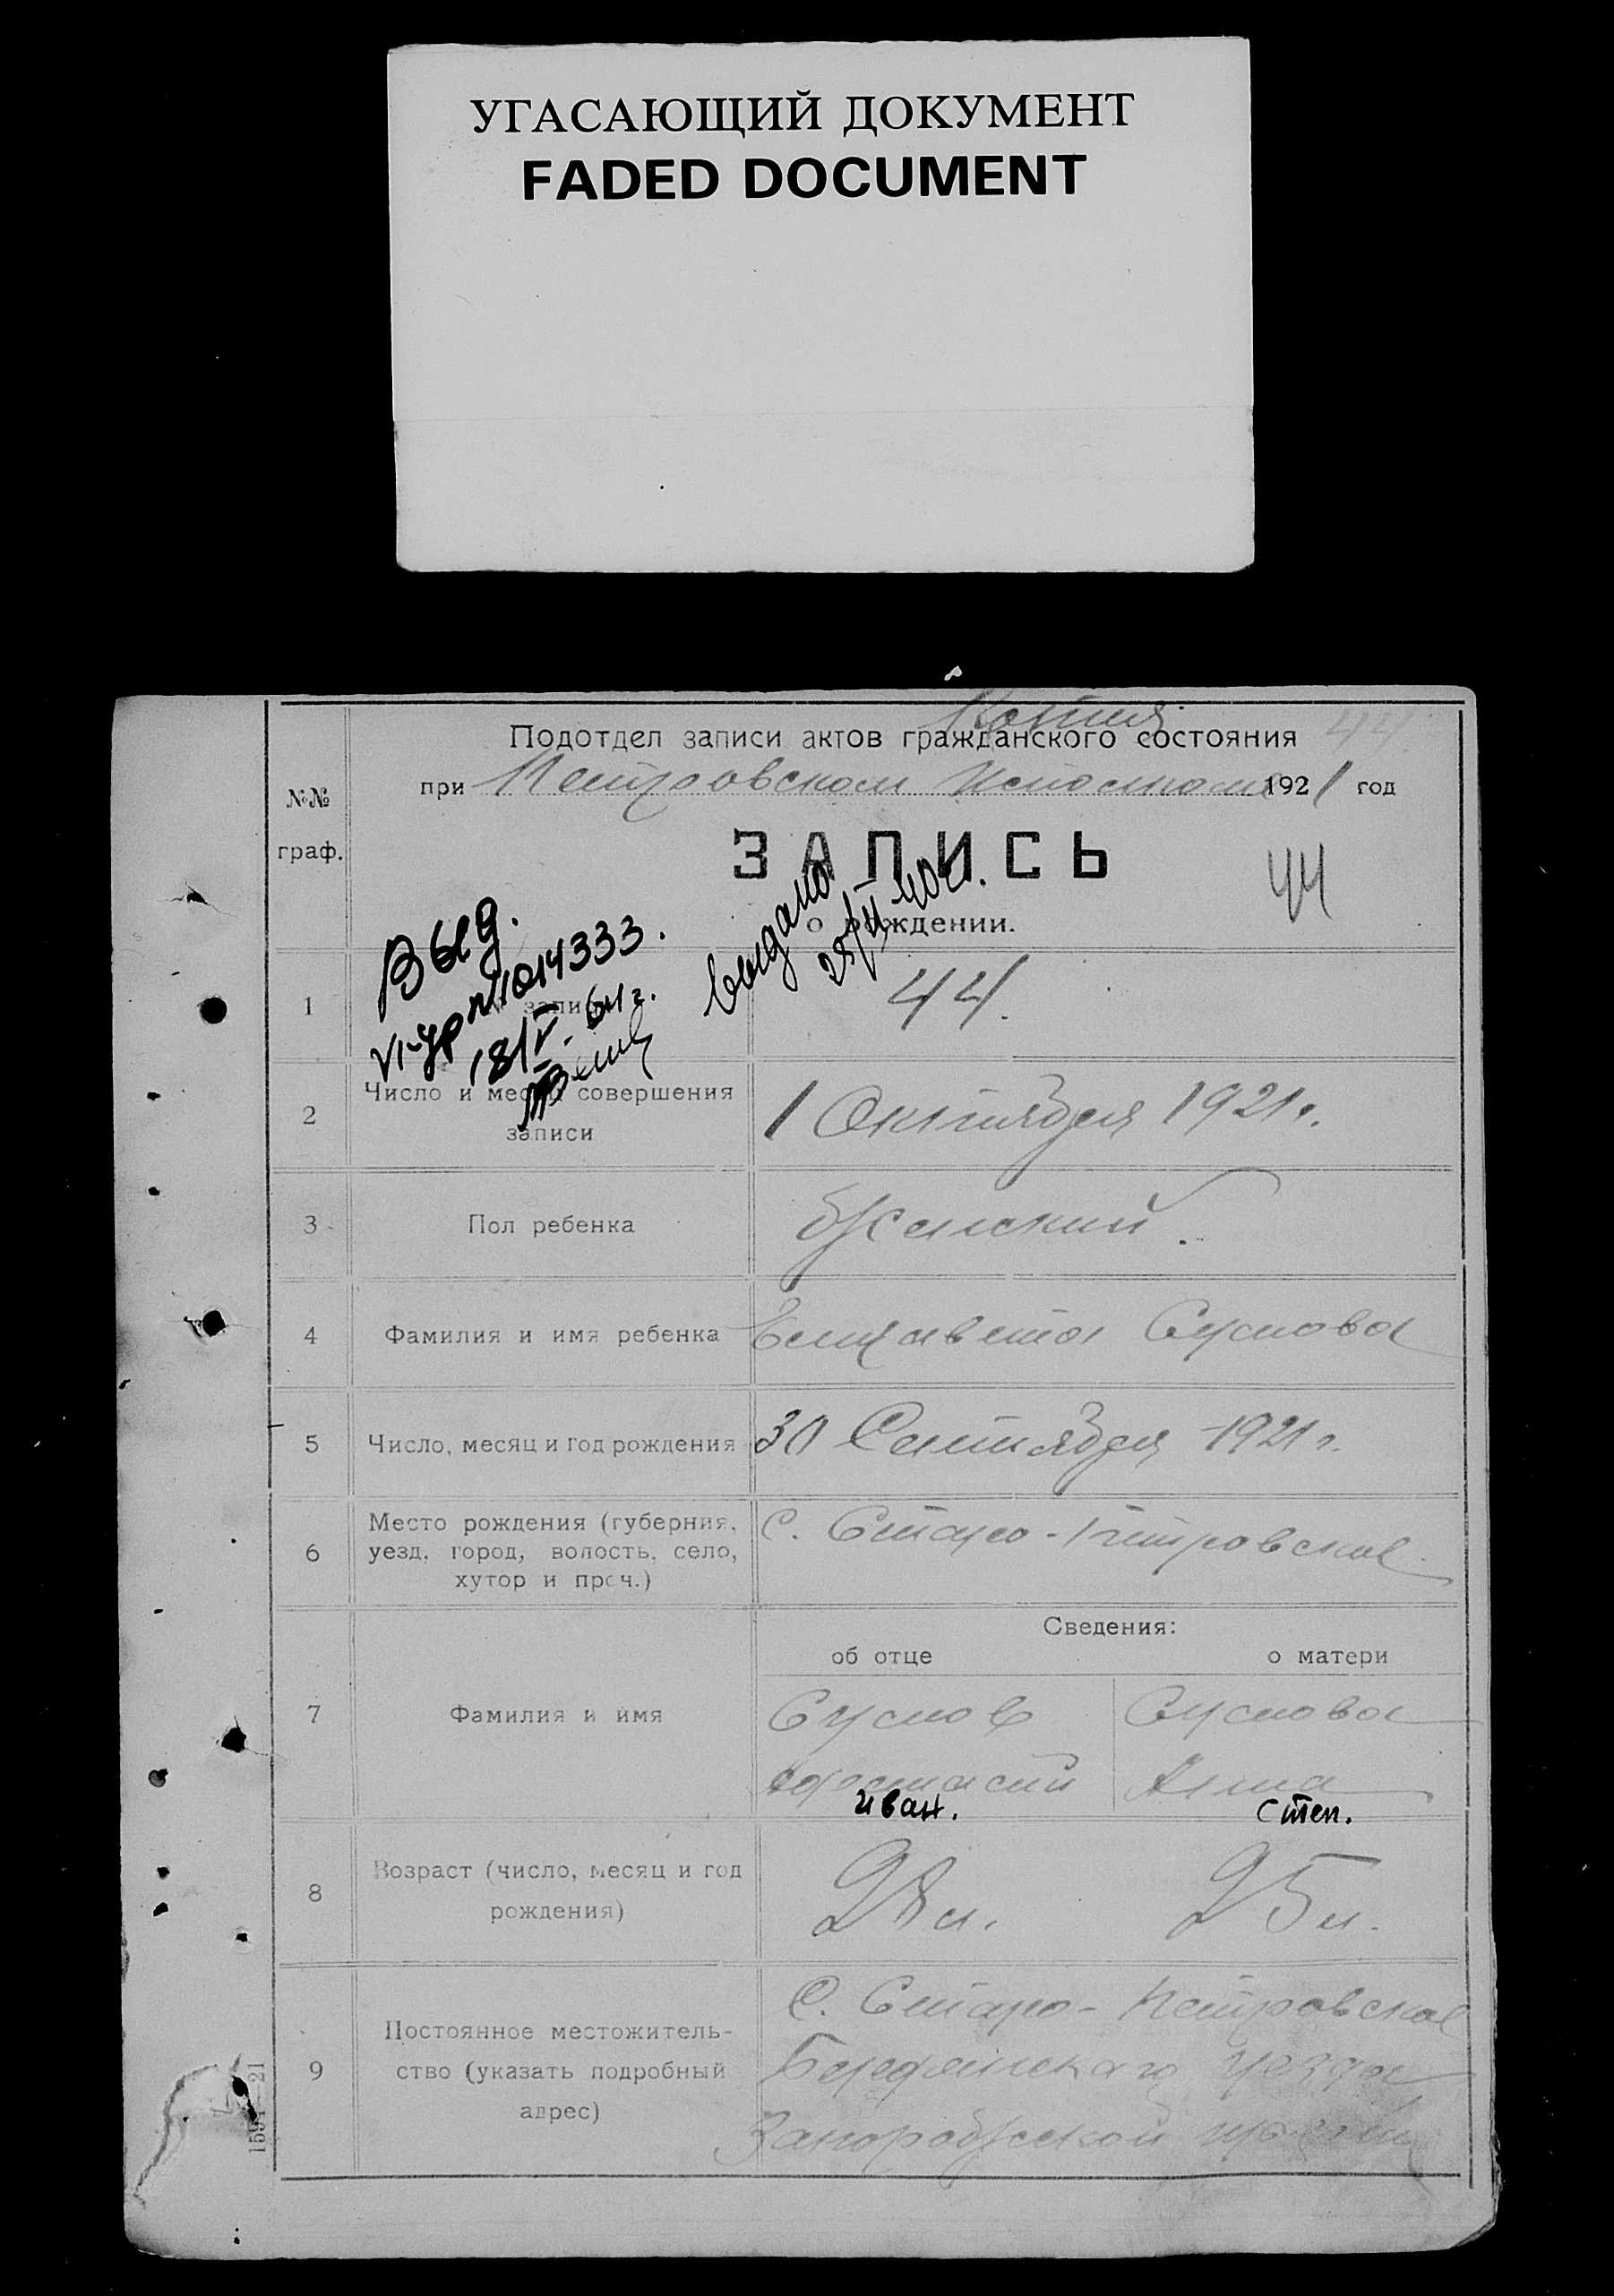 УГАСАЮЩИЙ ДОКУМЕНТ
FADED DOCUMENT
Копия
44.
Подотдел записи актов гражданского состояния
при Петровском Исполкоме 1921 год
№№
граф.
ЗАПИСЬ
о рождении.
44
Выд.
№ 1014333.
18/V. 64 г.
выдано
40 г.
1 записи 44.
2 Число и месяц совершения
записи
1 Октября 1921 г.
3 Пол ребенка Женский.
4 Фамилия и имя ребенка Елизавета Суслова
5 Число, месяц и год рождения 30 Сентября 1921 г.
6 Место рождения (губерния,
уезд, город, волость, село,
хутор и проч.)
С. Старо-Петровское
Сведения:
об отце о матери
7 Фамилия и имя
Суслов Суслова
Анна
Иван. Степ.
8 Возраст (число, месяц и год
рождения)
28 л. 25 л.
9 Постоянное местожитель-
ство (указать подробный
адрес)
С. Старо-Петровское
Бердянского уезда
Запорожской